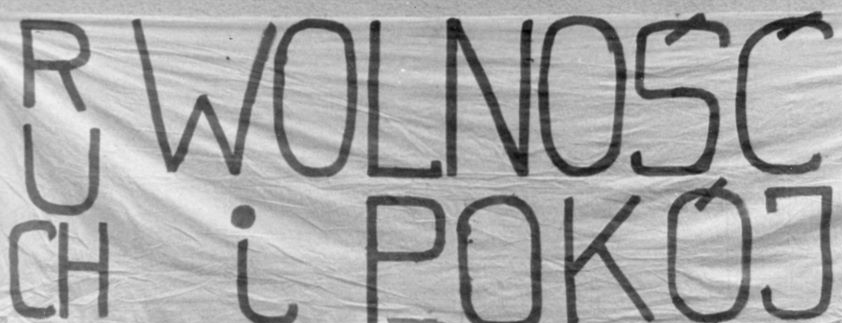 RUCH
WOLNOŚĆ
i POKÓJ